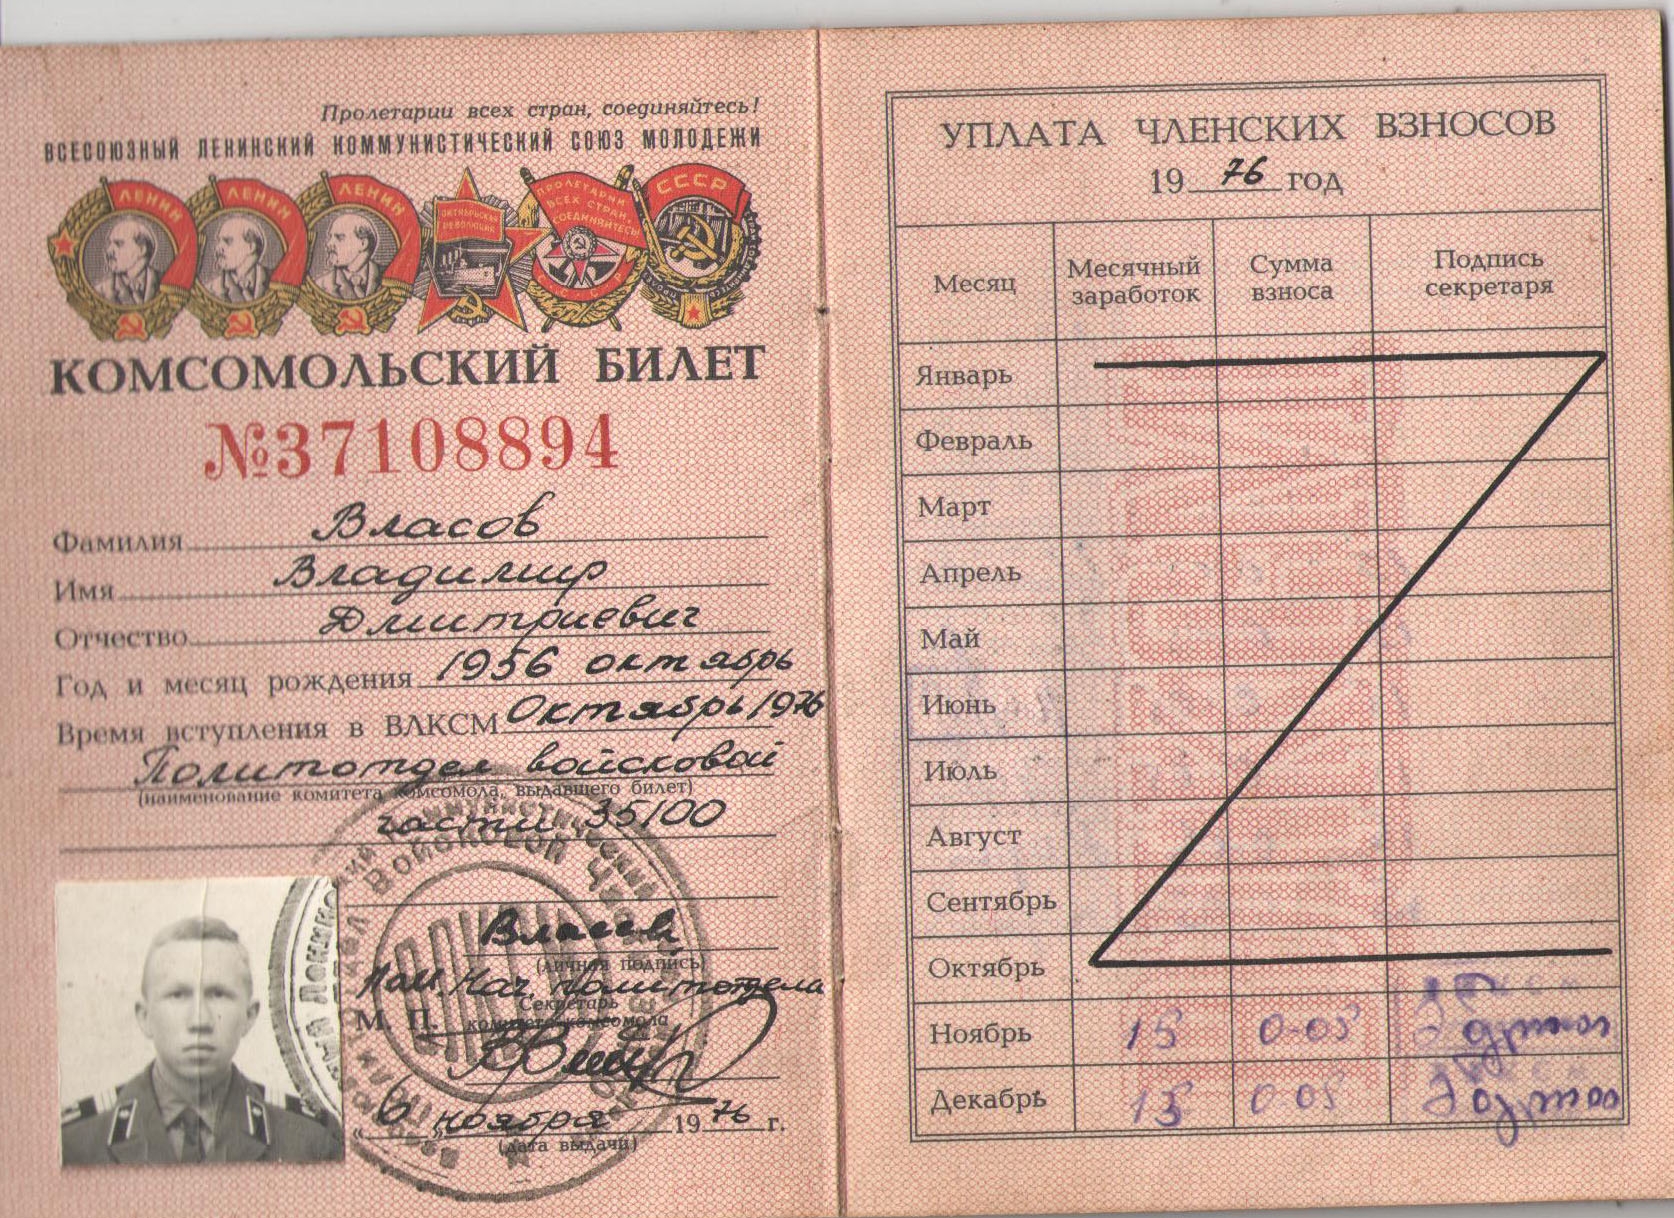 Пролетарии всех стран, соединяйтесь!
ВСЕСОЮЗНЫЙ ЛЕНИНСКИЙ КОММУНИСТИЧЕСКИЙ СОЮЗ МОЛОДЕЖИ
ЛЕНИН ЛЕНИН ЛЕНИН
ОКТЯБРЬСКАЯ РЕВОЛЮЦИЯ
ПРОЛЕТАРИИ ВСЕХ СТРАН, СОЕДИНЯЙТЕСЬ
СССР
КОМСОМОЛЬСКИЙ БИЛЕТ
№37108894
Фамилия Власов
Имя Владимир
Отчество Дмитриевич
Год и месяц рождения 1956 октябрь
Время вступления в ВЛКСМ Октябрь 1976
Политотдел войсковой
(наименование комитета комсомола, выдавшего билет)
части 35100
Власов
(личная подпись)
Пом. Нач политотдела
Секретарь
М. П. комитета комсомола
6 ноября 1976 г.
(дата выдачи)
УПЛАТА ЧЛЕНСКИХ ВЗНОСОВ
1976 год
Месяц Месячный заработок Сумма взноса Подпись секретаря
Январь
Февраль
Март
Апрель
Май
Июнь
Июль
Август
Сентябрь
Октябрь
Ноябрь 15 0-05
Декабрь 15 0-05